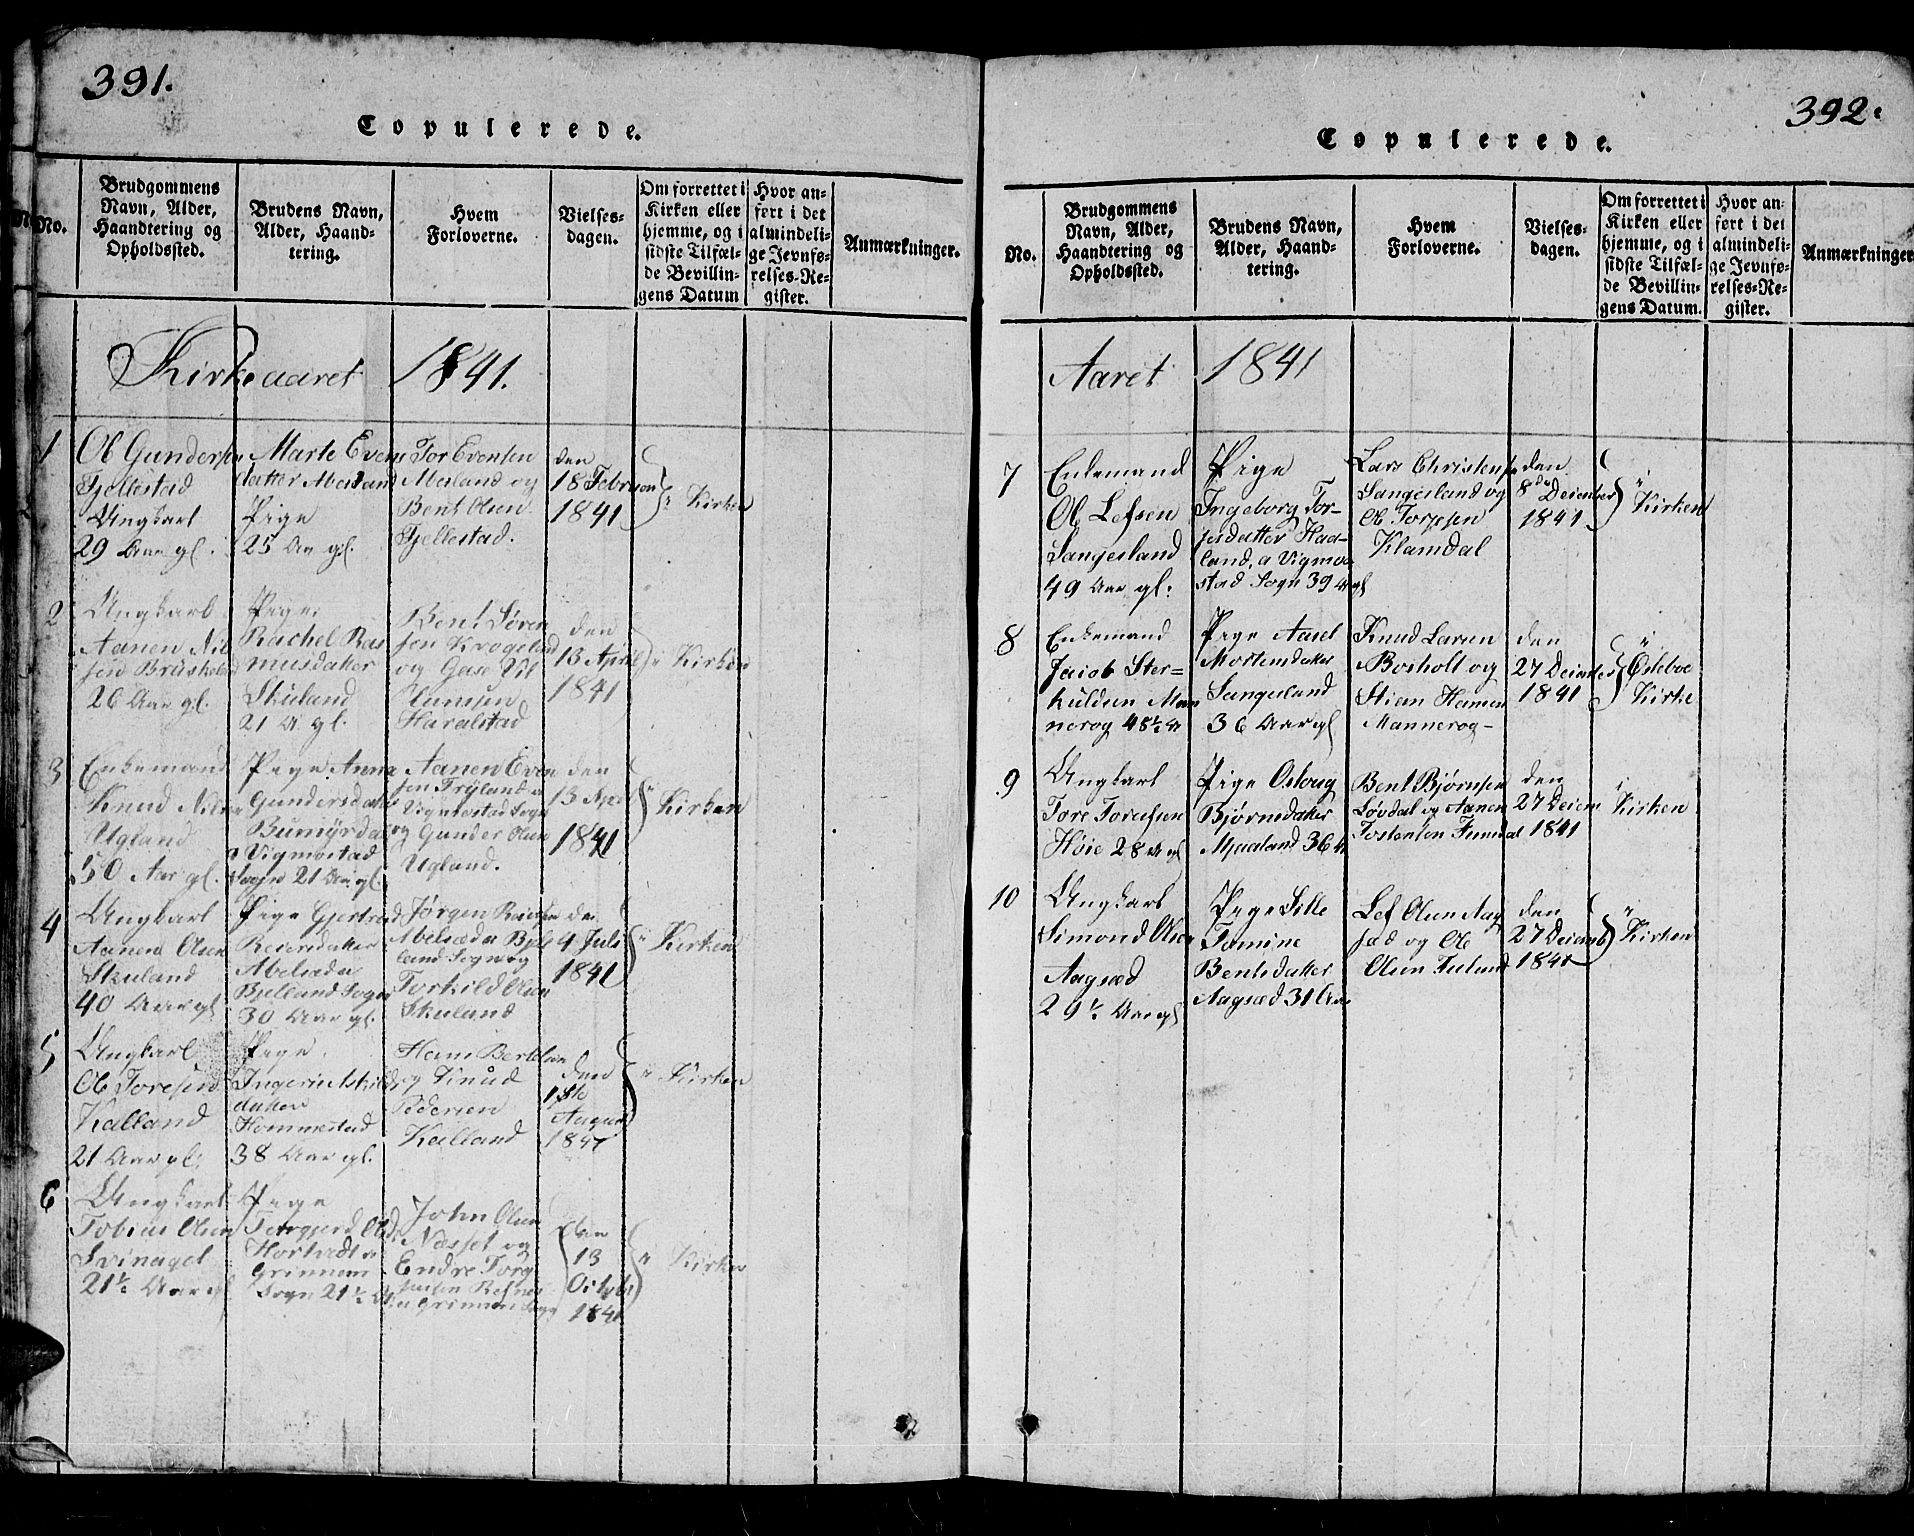 391.
Copulerede.
No.
Brudgommens
Navn, Alder,
Haandtering og
Opholdssted.
Brudens Navn,
Alder, Haand-
tering.
Hvem
Forloverne.
Vielses-
dagen.
Om forrettet i
Kirken eller
hjemme, og i
sidste Tilfæl-
de Bevillin-
gens Datum
Hvor an-
ført i det
almindeli-
ge Jevnfø-
relses-Re-
gister.
Anmærkninger.
Kirkeaaret 1841.
1
Ol Gundersen
Fjellestad
Ungkarl
29 Aar gl.
Marte Evens
datter Mesland
Pige
25 Aar gl.
Tor Evensen
Mesland og
Bent Olsen
Fjellestad.
den
18 Februari
1841
" Kirken
2
Ungkarl
Aanen Nil
sen Bruskeland
26 Aar gl.
Pige
Rachel Ras
musdatter
Skuland
21 A gl.
Bent Søren
sen Krogeland
og Gase Vil
Hansen
Haralstad
den
13 April
1841
" Kirken
3
Enkemand
Knud Nilsen
Ugland
50 Aar gl.
Pige Anna
Gundersdatter
Bumyrdal
Vigmostad
Sogn 21 Aar gl.
Aanen Even
sen Fryland a
Vigmostad Sogn
og Gunder Olsen
Ugland.
den
13 April
1841
" Kirken
4
Ungkarl
Aanen Olsen
Skuland
40 Aar gl
Pige Gjertrud
Reiersdatter
Abelseda
Bjelland Sogn
30 Aar gl.
Jørgen Reiersen
Abelsæda Bjel
land Sogn og
Torkild Olsen
Skuland
den
4 Juli
1841
" Kirken
5
Ungkarl
Ol Toresen
Kalland
21 Aar gl.
Pige
Ingerie Askilds
datter
Hommestad
38 Aar gl.
Hans Bertelsen
og Knud
Pedersen
Kalland
den
August
1841
" Kirken
6
Ungkarl
Tobias Olsen
Svinaget
21½ Aar gl
Pige
Torgjerd Olsd
Hortvedt a
Grinnem
Sogn 21½ A
John Olsen
Næsset og
Endre Torg
jusen Refsnes
a Grinnem Sogn
den
13
Octobr
1841
" Kirken
392.
Copulerede.
No.
Brudgommens
Navn, Alder,
Haandtering og
Opholdssted.
Brudens Navn,
Alder, Haand-
tering.
Hvem
Forloverne.
Vielses-
dagen.
Om forrettet i
Kirken eller
hjemme, og i
sidste Tilfæl-
de Bevillin-
gens Datum.
Hvor an-
ført i det
almindeli-
ge Jevnfø-
relses-Re-
gister.
Anmærkninger
Aaret 1841
7
Enkemand
Ol Lefsen
Sangesland
49 Aar gl:
Pige
Ingeborg Tor-
jesdatter Haa-
land, a Vigmo
stad Sogn 39 A gl
Lars Christensen
Sangesland og
Ol Torjesen
Klamdal
den
8de Decimber
1841
" Kirken
8
Enkemand
Jacob Ster-
kuldsen Man
nerog 48½ A
Pige Aasel
Mortensdatter
Sangesland
36 Aar gl
Knud Larsen
Bosholt og
Stian Hansen
Mannerog-
den
27 Decimber
1841
"
Øslebø
Kirke
9
Ungkarl
Tore Toresen
Høie 28 A gl
Pige Oslaug
Bjørnsdatter
Mjaaland 36 A
Bent Bjørnsen
Løvdal og Aanen
Tostensen Finsdal
den
27 Decem
1841
" Kirken
10
Ungkarl
Simond Olsen
Aagsæd
29½ Aar gl
Pige Sille
Tomine
Bentsdatter
Aagsæd 31 Aar
Lef Olsen Aag
sad og Ol
Olsen Fuland
den
27 Decemb
1841
" Kirken